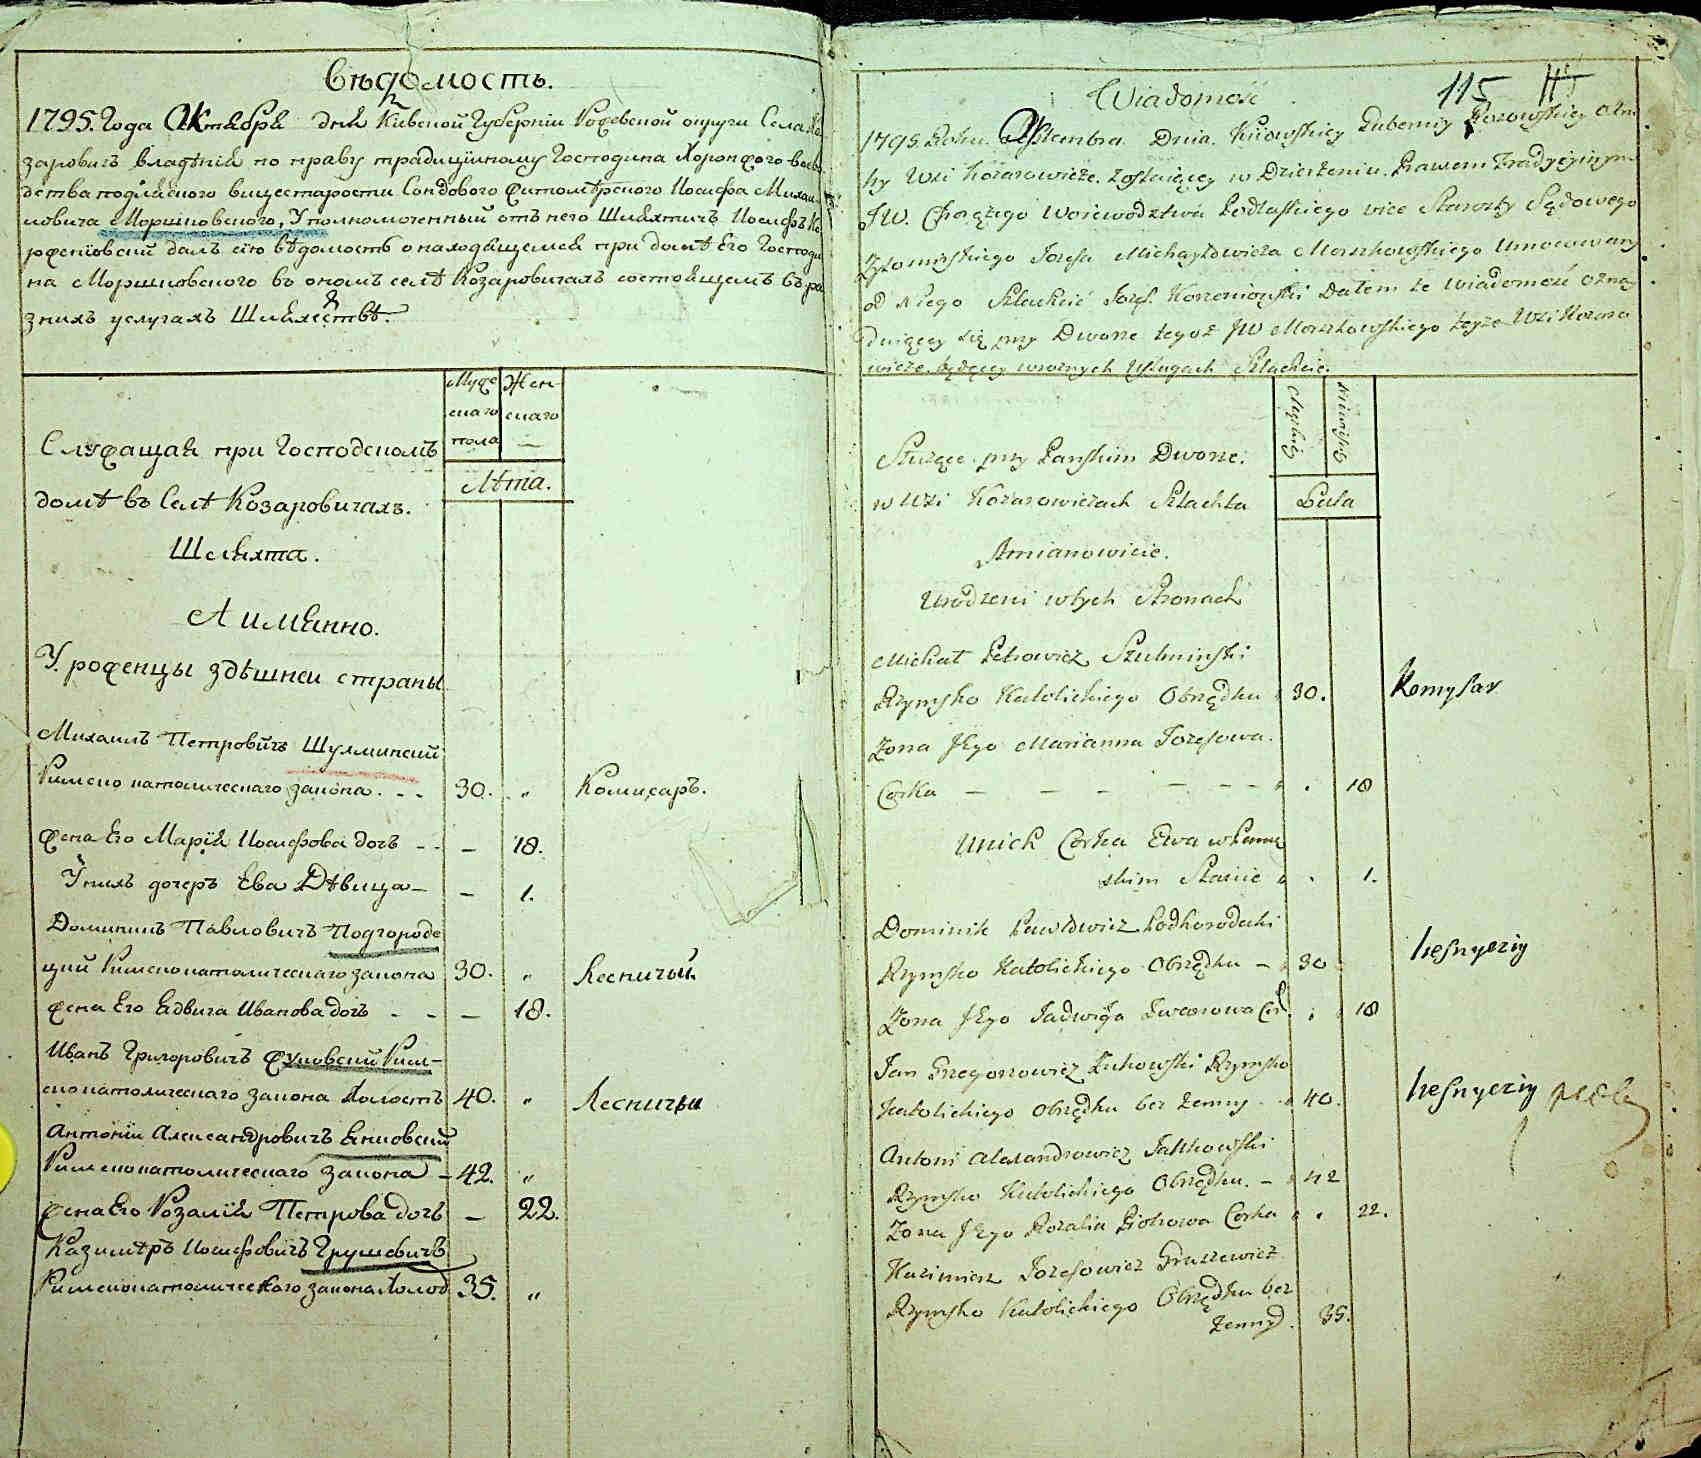 Вѣдомость.
1795. Года Октября дня Кіевской Губерніи Рожевской округи Села Ко
заровичъ владѣнія по праву традиційному Господина Хоронжого воево
дства подляского вицестарости Сондового Житомѣрского Иосифа Михаи
ловича Моршковского, Уполномоченный отъ него Шляхтичъ Иосифъ Ко
рженіовскій далъ сію вѣдомость о находящемся при домѣ Его Господи
на Моршковского во ономъ селѣ Козаровичахъ состоящемъ въ ра
зныхъ услугахъ Шляхетствѣ.
Мужескаго пола
Женскаго
Лѣта.
Служащая при Господскомъ
домѣ во Селѣ Козаровичахъ.
Шляхта.
А имянно.
Урожецы здѣшнеи страны
Михаилъ Петровичъ Шулминскій
Римско католическаго закона. - - 30. „ Комисаръ.
жена Его Марія Иосифова дочъ - - — 18.
У нихъ дочеръ Ева Дѣвица — — 1.
Доминикъ Павловичъ Подгороде
цкій Римскокатолическаго закона 30. „ Лесничый
жена Его Едвига Иванова дочъ - - — 18.
Иванъ Григоровичъ Жуковскій Рим-
скокатолическаго закона Холостъ 40. „ Лесничый
Антоній Александровичъ Янковскій
Римскокатолическаго закона - 42. „
жена Его Розалія Петрова дочъ — 22.
Казимѣръ Иосифовичъ Грушевичъ
Римскокатолическаго закона Холост 35. „
Wiadomość
115
1795. Roku Oktembra Dnia. Kiiowskiey Gubernij Rożowskiey Okru
hy Wsi Kozarowicze. zostaiącey w Dzierżeniu. Prawem Tradycyinym
JW. Chorążego Woiewodztwa Podlaskiego vice Starosty Sądowego
Żytomirskiego Jozefa Michayłowicza Morszkowskiego Umocowany
od Niego Szlachcic Jozef Korzeniowski Dałem te wiadomość o znay
duiącey się przy Dworze tegoż JW Morszkowskiego teyże Wsi Kozaro
wicze będącey w roznych Usługach Szlachcie.
Męskiey
Niewieskiey
Lata
Służące przy Pańskim Dworze.
w Wsi Kozarowiczach Szlachta
Amianowicie.
Urodzeni w tych Stronach
Michał Petrowicz Szulminski
Rzymsko Katolickiego Obrządku 30. Komysar
Żona Jego Marianna Jozefowa.
Corka — — — — — 18
Unich Corka Ewa w Panień
skim Stanie 1.
Dominik Pawłowicz Podhorodecki
Rzymsko Katolickiego Obrządku — 30 Lesnycziy
Żona Jego Jadwiga Iwanowa Cor. 18
Jan Grzegorzowicz Żukowski Rzymsko
Katolickiego Obrządku bez Żenny 40. Lesnycziy
Antoni Alexandrowicz Jankowski
Rzymsko Katolickiego Obrządku. — 42
Żona Jego Rozalia Piotrowa Corka 22.
Kazimierz Jozefowicz Gruszewicz
Rzymsko Katolickiego Obrządku bez
Żenny. 35.